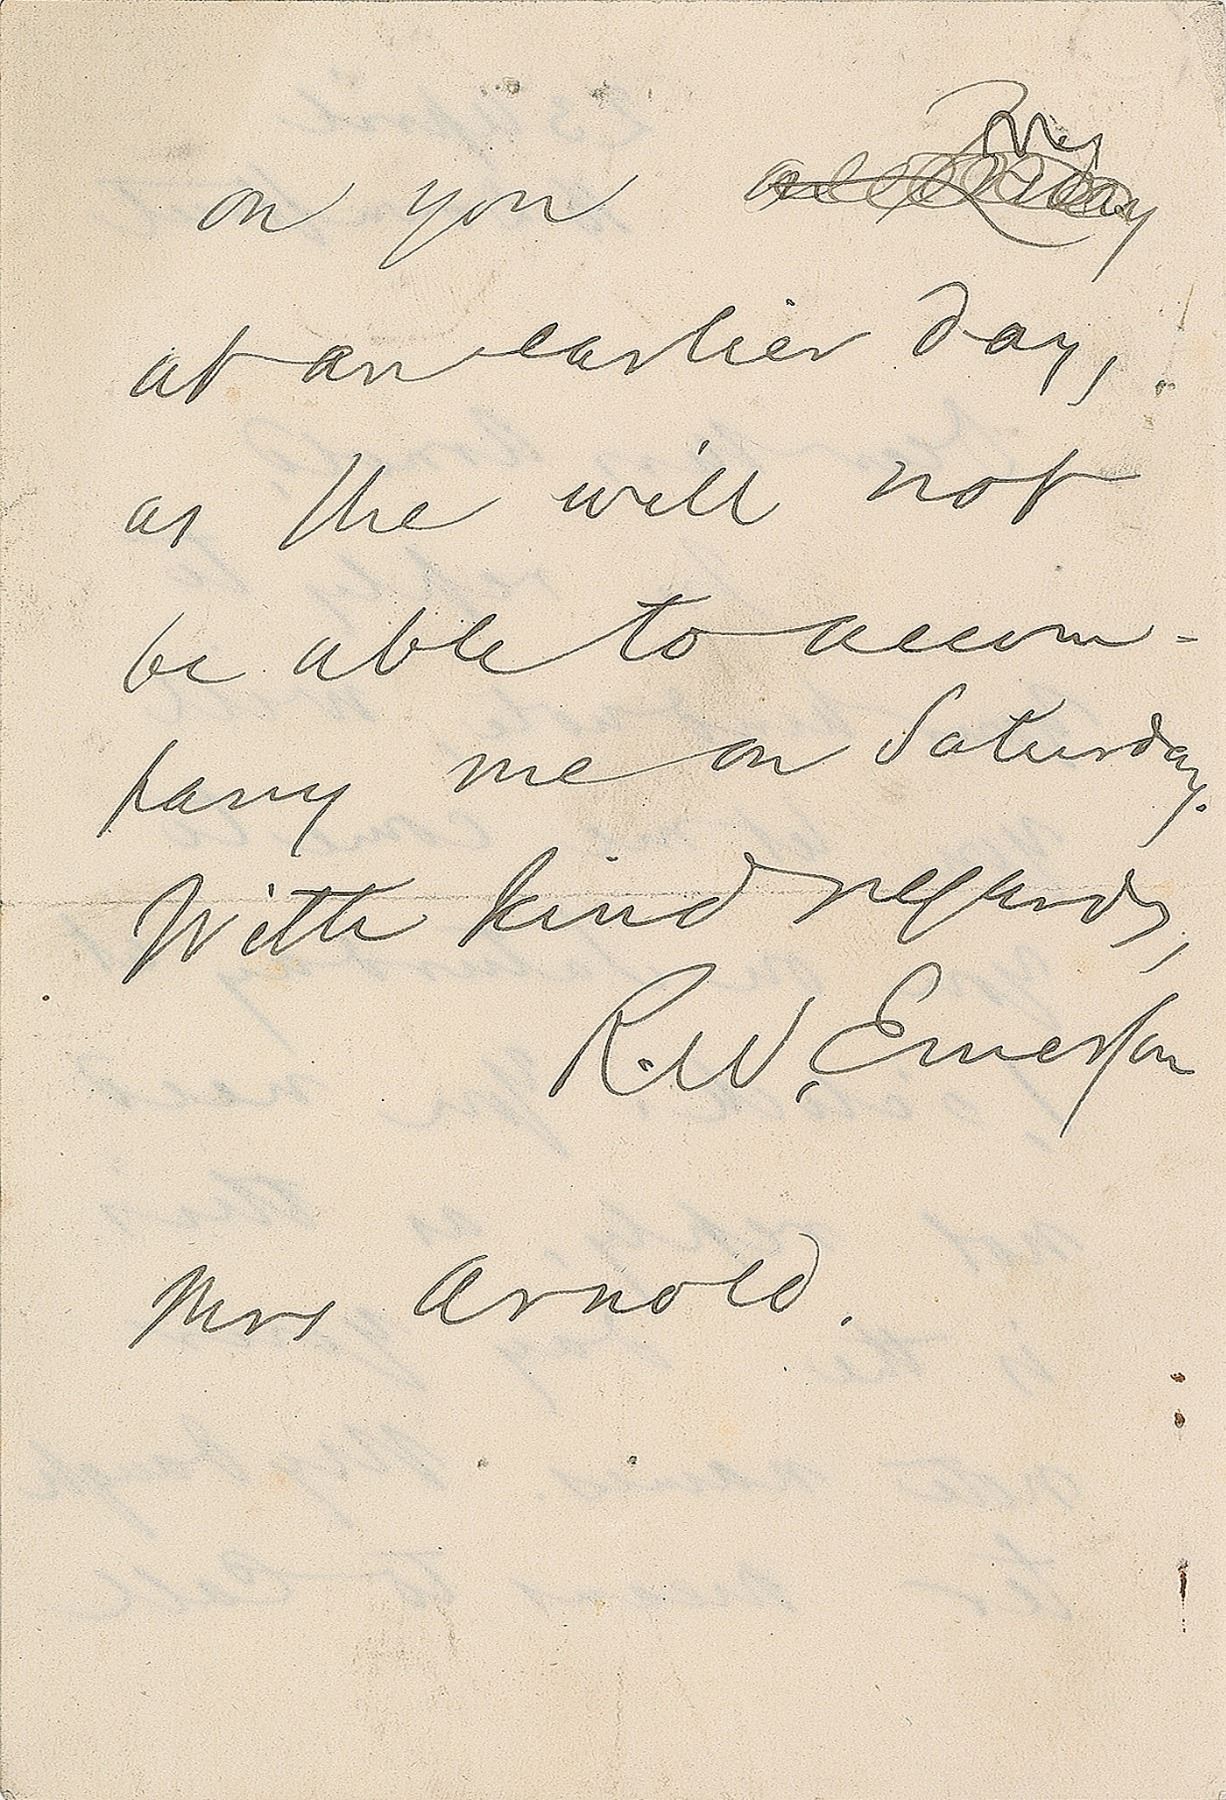 on you
at an earlier day,
as she will not
be able to accom-
pany me on Saturday.
With kind regards,
R. W. Emerson
Mrs Arnold.